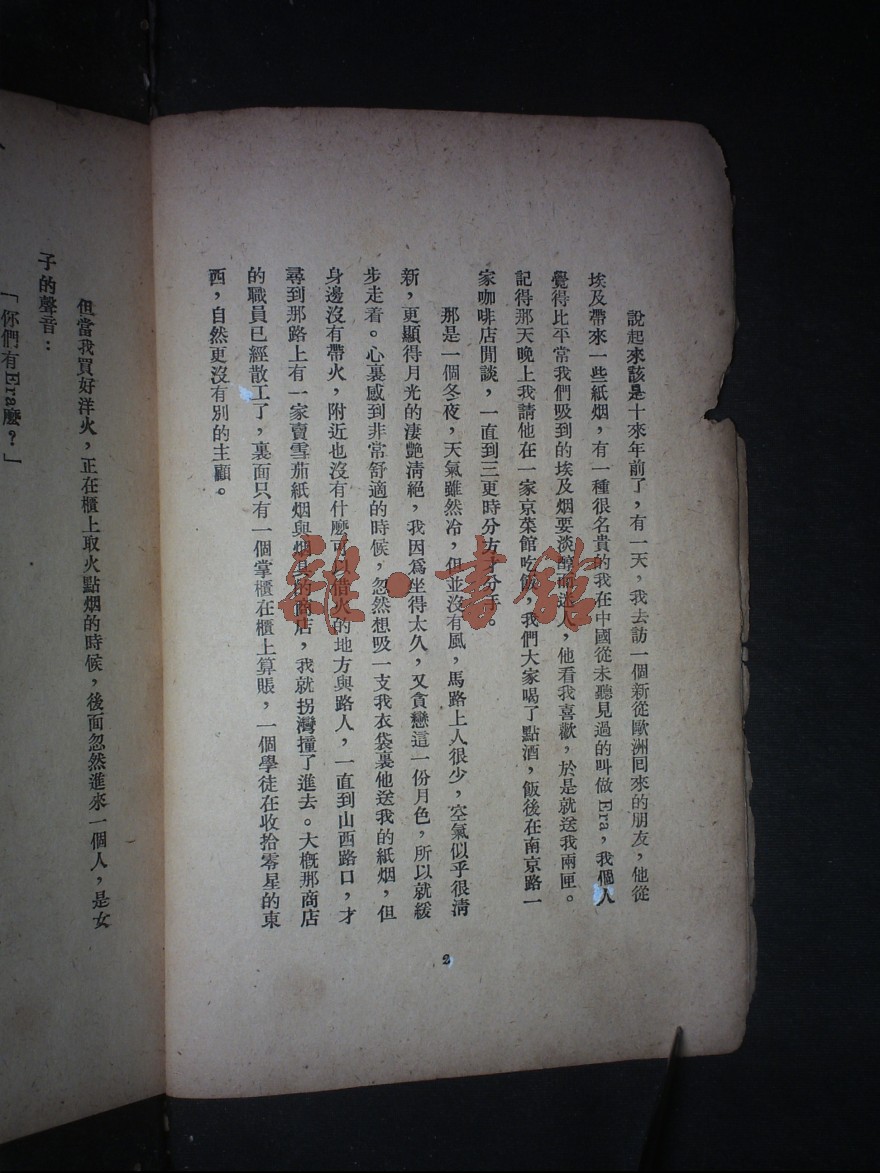 說起來該是十來年前了，有一天，我去訪一個新從歐洲回來的朋友，他從
埃及帶來一些紙烟，有一種很名貴的我在中國從未聽見過的叫做Era，我個人
覺得比平常我們吸到的埃及烟要淡醇而迷人，他看我喜歡，於是就送我兩匣。
記得那天晚上我請他在一家京菜館吃飯，我們大家喝了點酒，飯後在南京路一
家咖啡店閒談，一直到三更時分方才分手。
那是一個冬夜，天氣雖然冷，但並沒有風，馬路上人很少，空氣似乎很清
新，更顯得月光的淒艷清絕，我因爲坐得太久，又貪戀這一份月色，所以就緩
步走着。心裏感到非常舒適的時候，忽然想吸一支我衣袋裏他送我的紙烟，但
身邊沒有帶火，附近也沒有什麼可以借火的地方與路人，一直到山西路口，才
尋到那路上有一家賣雪茄紙烟與烟具的商店，我就拐灣撞了進去。大槪那商店
的職員已經散工了，裏面只有一個掌櫃在櫃上算賬，一個學徒在收拾零星的東
西，自然更沒有別的主顧。
2
但當我買好洋火，正在櫃上取火點烟的時候，後面忽然進來一個人，是女
子的聲音：
「你們有Era麼？」
雜·書館